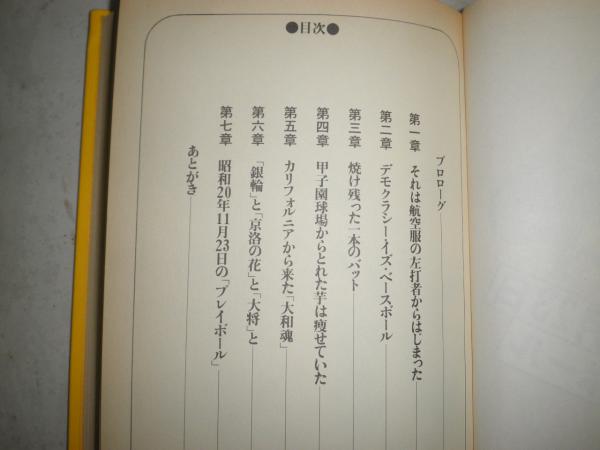 ●目次●
プロローグ
第一章 それは航空服の左打者からはじまった
第二章 デモクラシー・イズ・ベースボール
第三章 焼け残った一本のバット
第四章 甲子園球場からとれた芋は痩せていた
第五章 カリフォルニアから来た「大和魂」
第六章 「銀輪」と「京洛の花」と「大将」と
第七章 昭和20年11月23日の「プレイボール」
あとがき